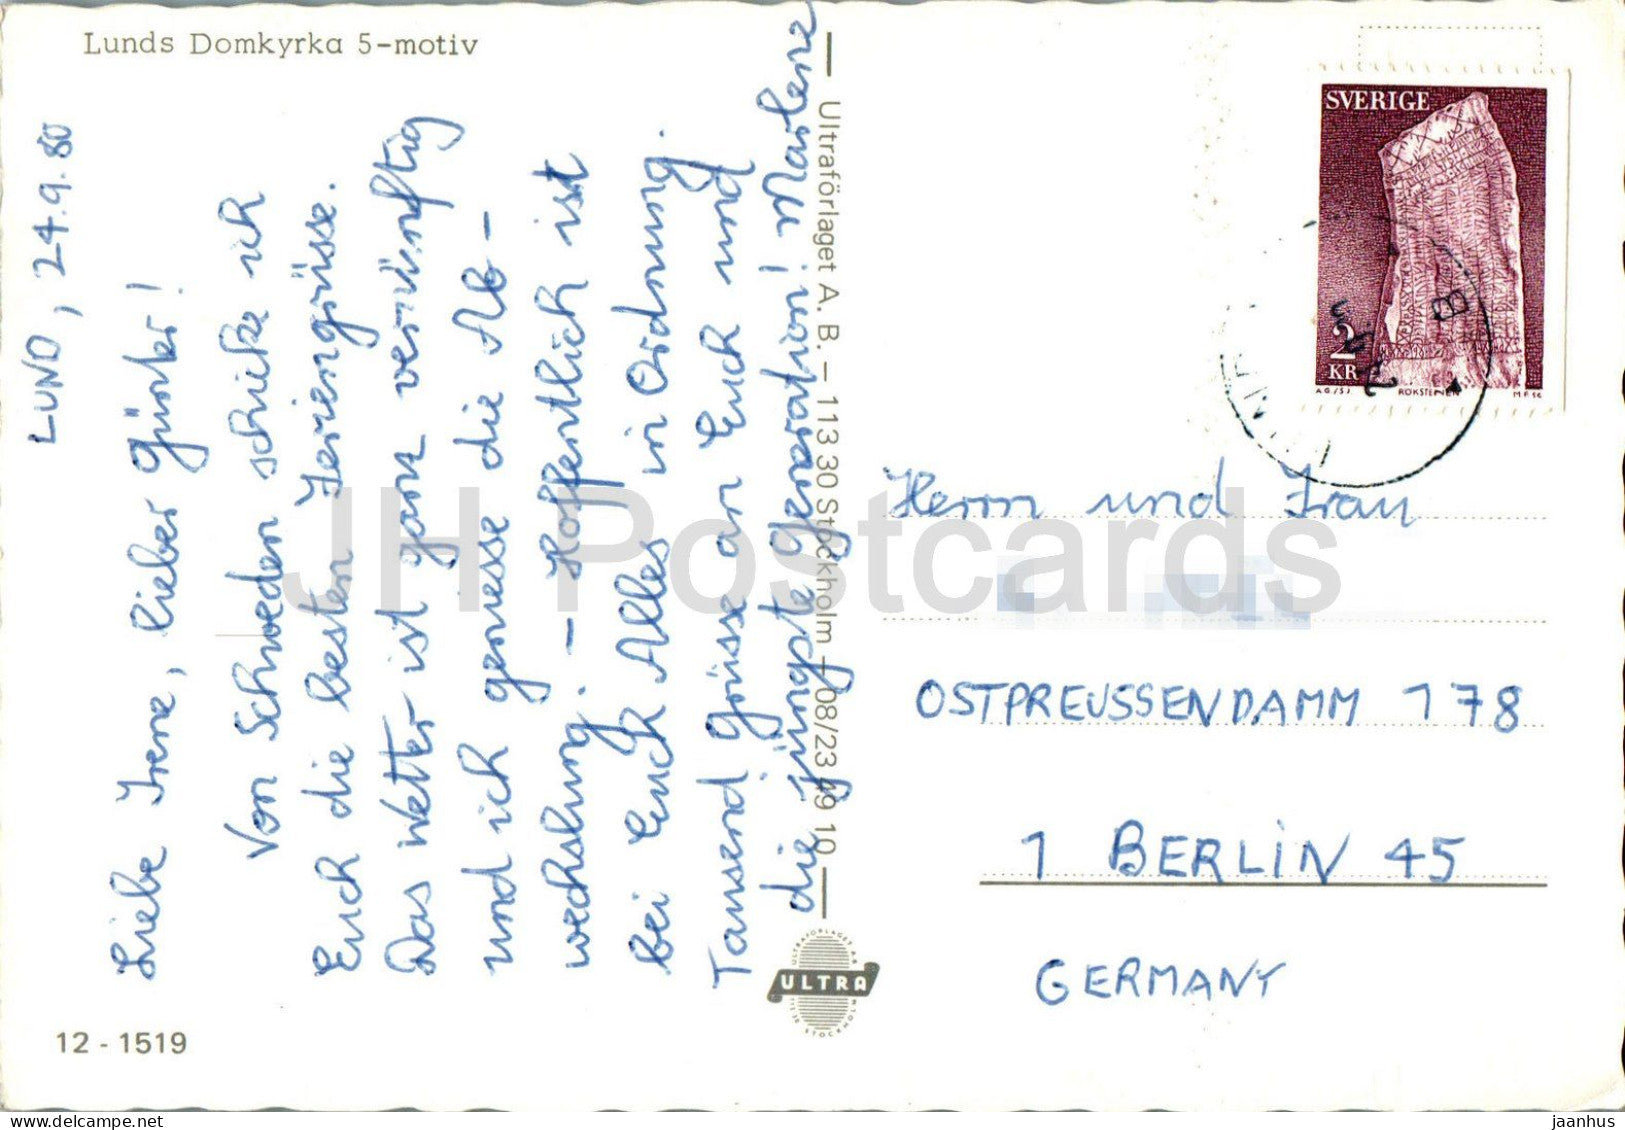 Lunds Domkyrka 5-motiv
LUND, 24.9.80
Liebe Irene, lieber Günter!
Von Schweden schicke ich
Euch die besten Feriengrüsse.
Das Wetter ist ganz vernünftig
und ich geniesse die Ab-
wechslung. - Hoffentlich ist
bei Euch Alles in Ordnung.
Tausend Grüsse an Euch und
die jüngste Generation! Marlene
Ultraförlaget A. B. – 113 30 Stockholm – 08/23 49 10
ULTRAFÖRLAGET AB
ULTRA
STOCKHOLM
12 - 1519
SVERIGE
2
KR
ROKSTENEN
B
Herrn und Frau
OSTPREUSSENDAMM 178
1 BERLIN 45
GERMANY
JH Postcards
www.delcampe.net
jaanhus